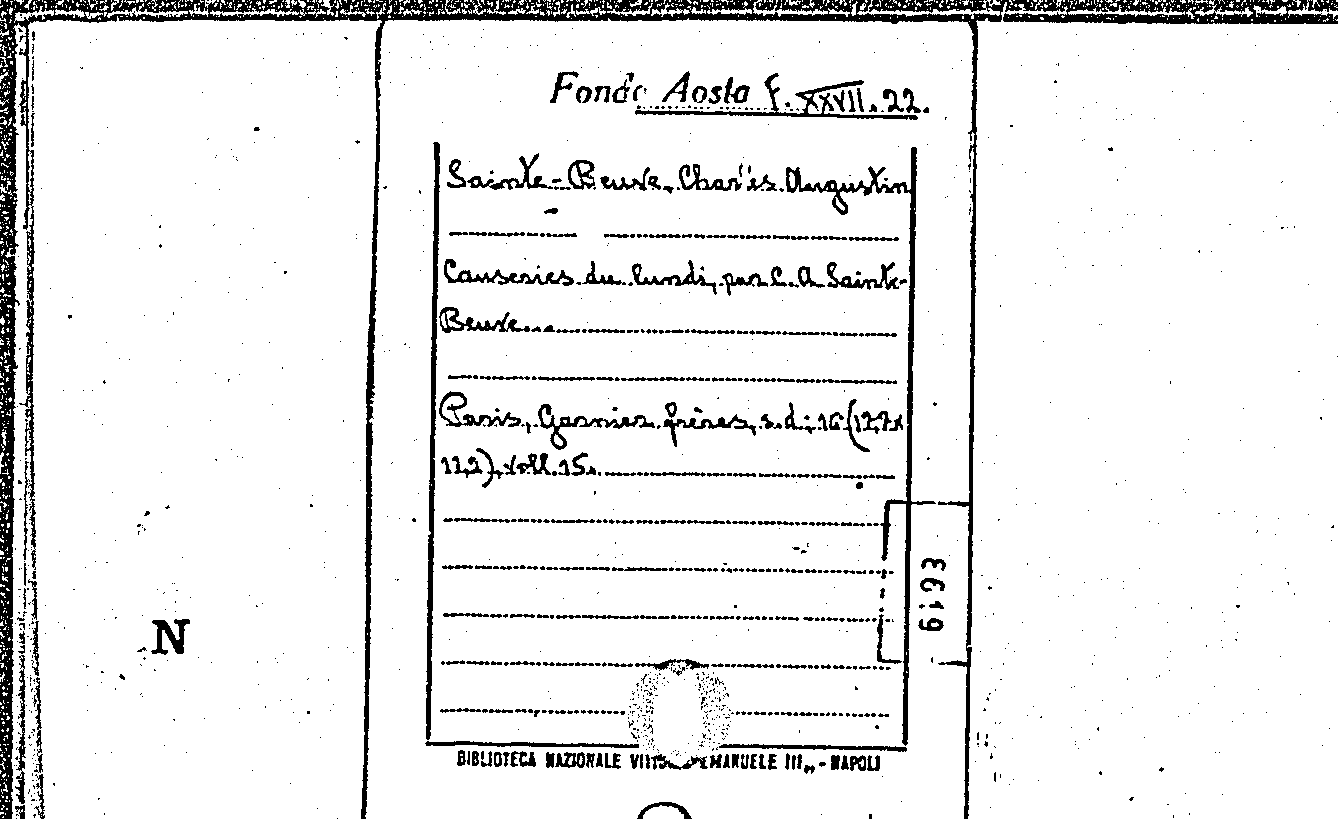 Fondo Aosta F. XXVII. 22.
Sainte-Beuve, Charles Augustin
Causeries du lundi, par C. A Sainte-
Beuve...
Paris, Garnier frères, s.d.; 16 (17,7x
11,2), voll. 15.
N
BIBLIOTECA NAZIONALE VITTORIO EMANUELE III„ - NAPOLI